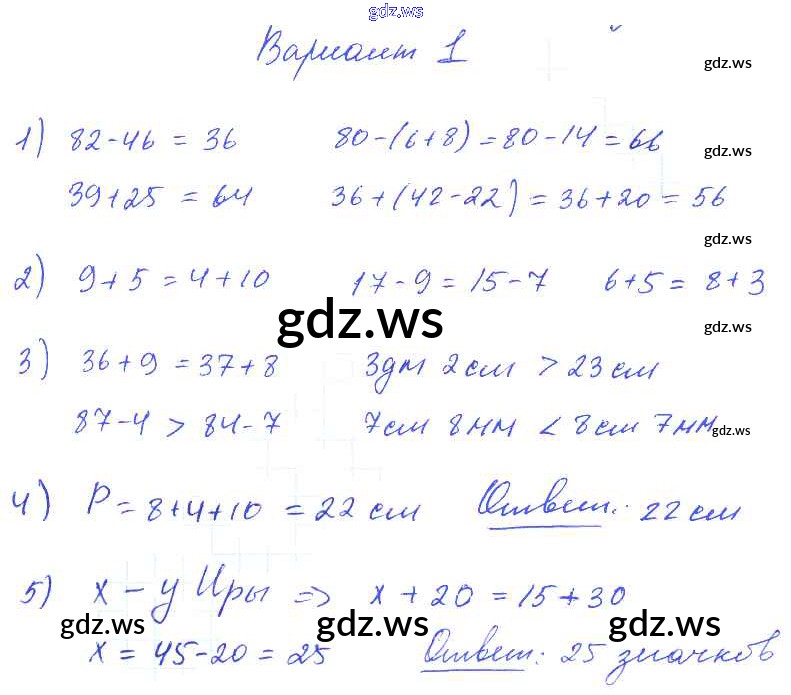 gdz.ws
Вариант 1
gdz.ws
1) 82-46 = 36 80-(6+8)=80-14=66
gdz.ws
39+25 = 64 36+(42-22)=36+20=56
gdz.ws
2) 9+5=4+10 17-9=15-7 6+5=8+3
gdz.ws
gdz.ws
3) 36+9=37+8 3дм 2см > 23см
87-4 > 84-7 7см 8мм < 8см 7мм
gdz.ws
4) P=8+4+10=22см Ответ: 22см
5) x - у Иры => x+20=15+30
gdz.ws gdz.ws gdz.ws
x = 45-20 = 25 Ответ: 25 значков